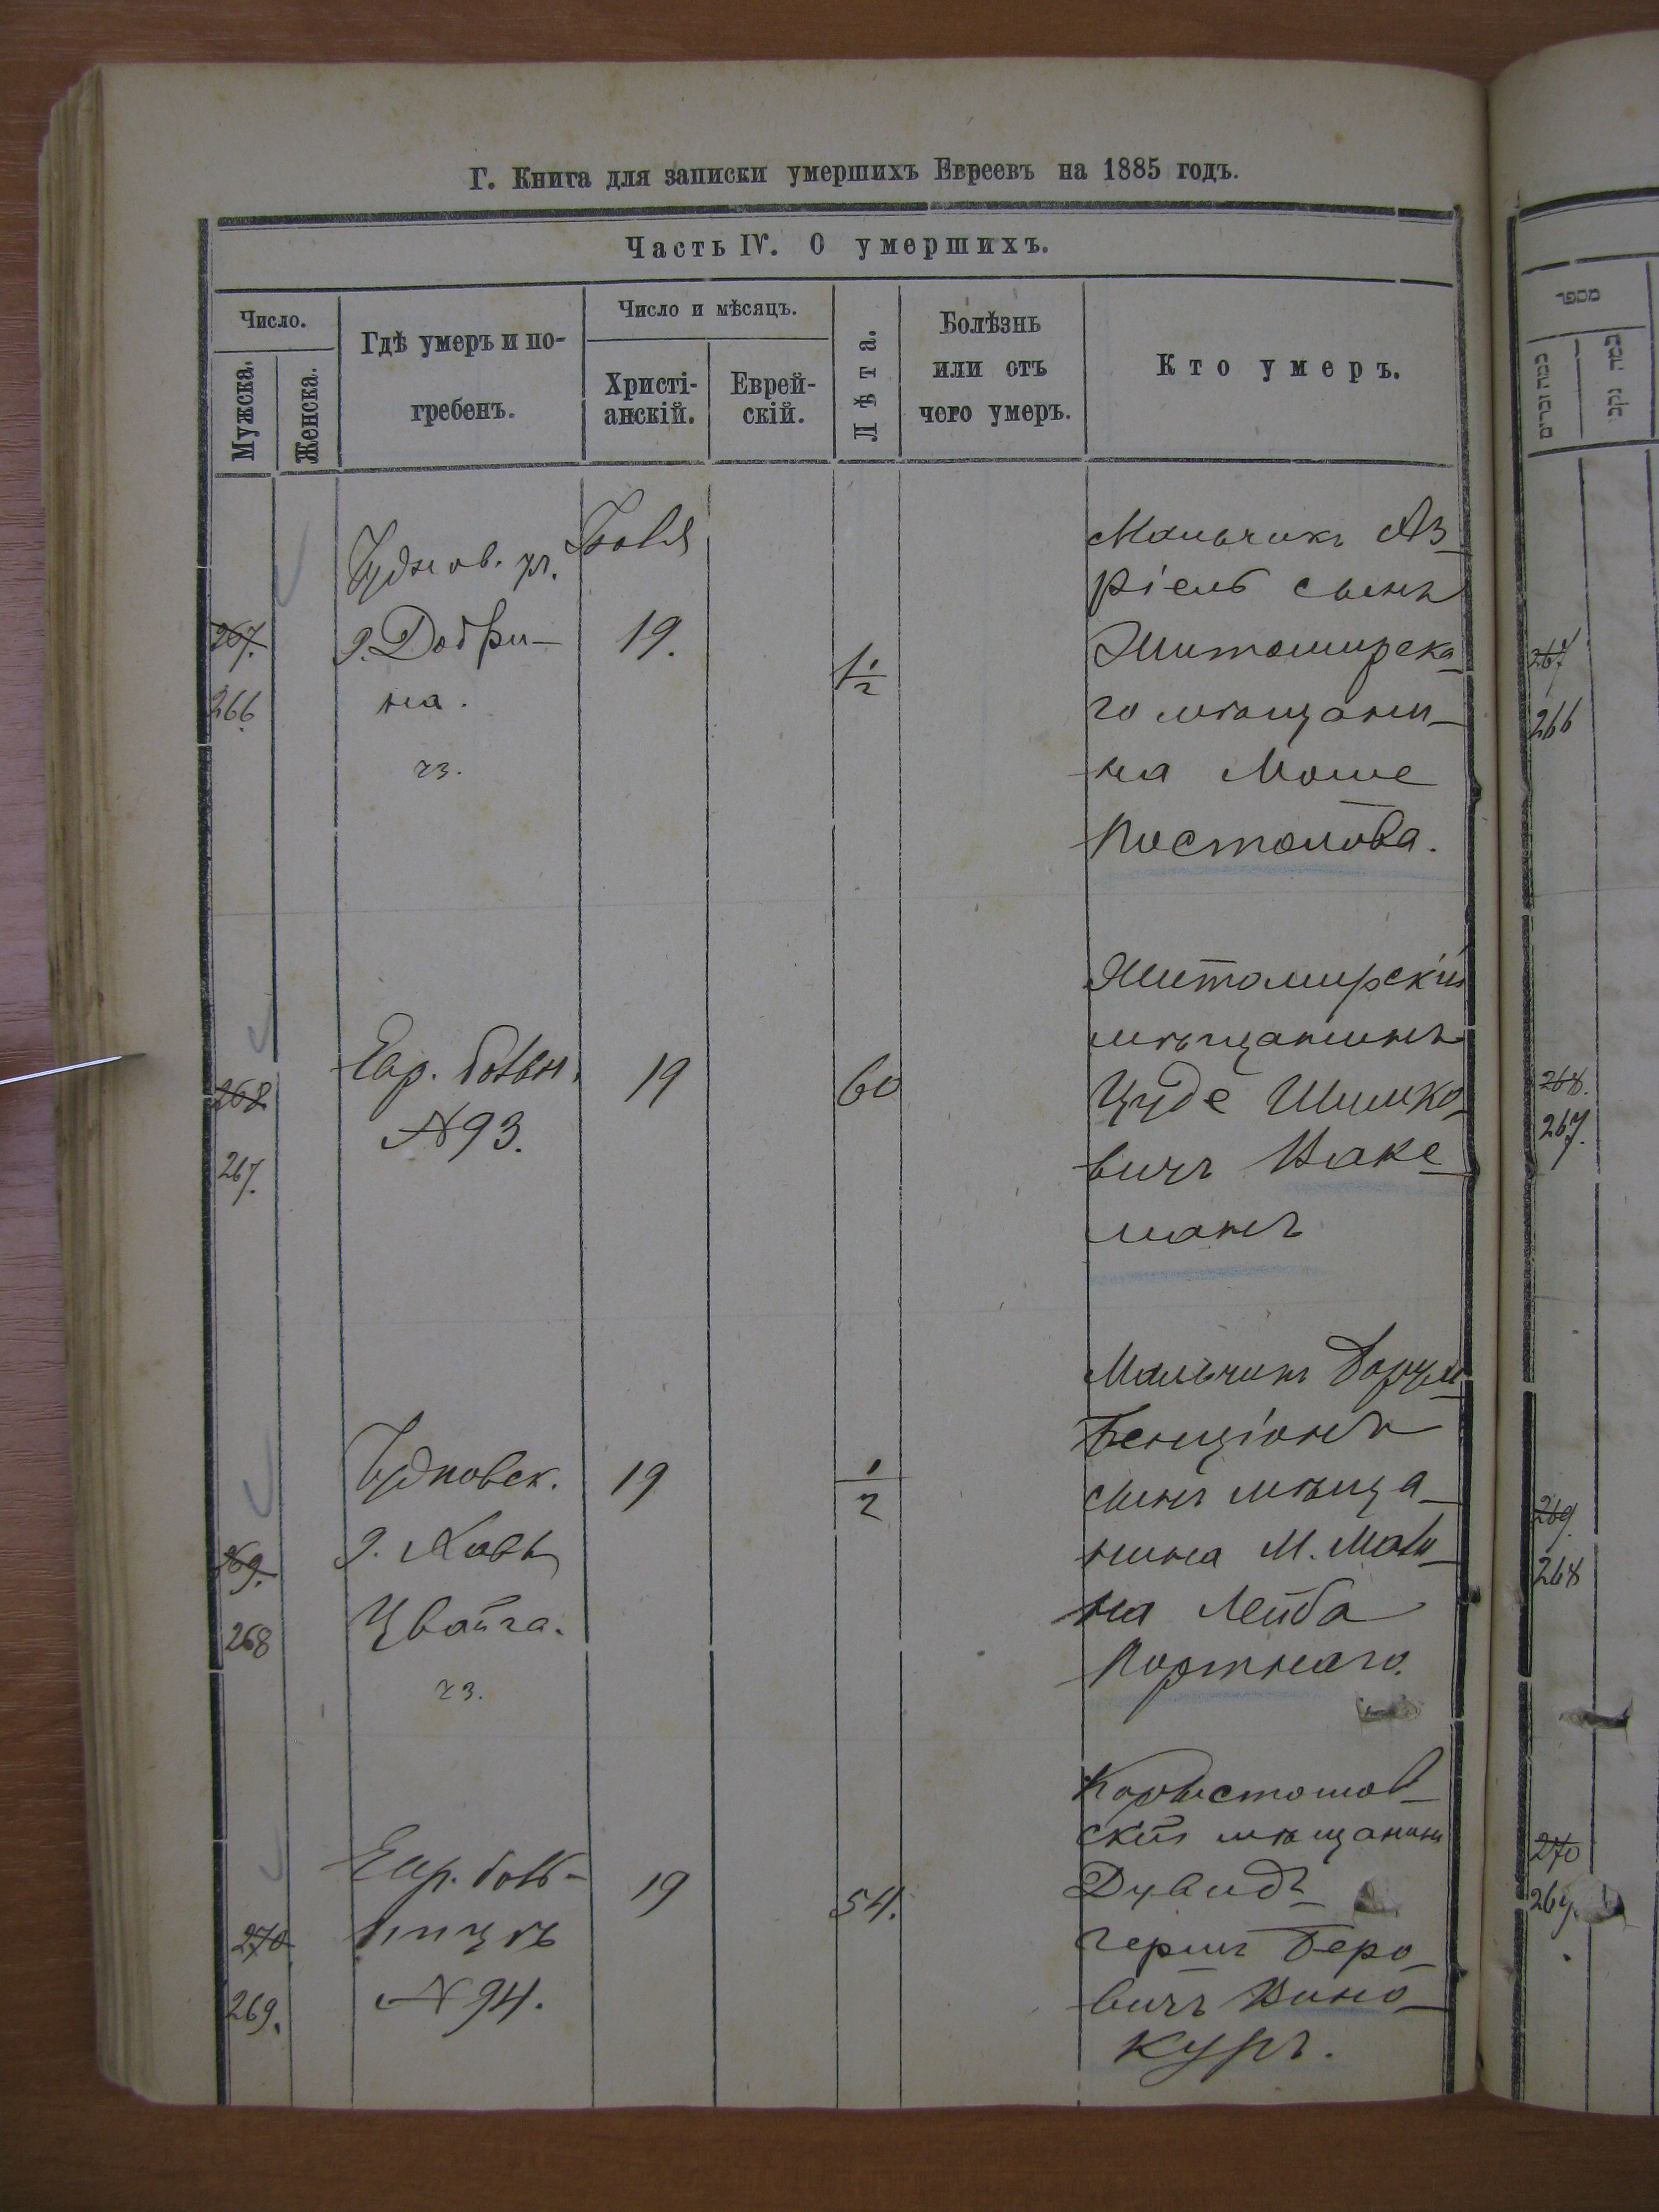 Г. Книга для записки умершихъ Евреевъ на 1885 годъ.
Часть IV. О умершихъ.
Число.
Мужска.
Женска.
Гдѣ умеръ и по-
гребенъ.
Число и мѣсяцъ.
Христі-
анскій.
Еврей-
скій.
Лѣта.
Болѣзнь
или отъ
чего умеръ.
Кто умеръ.
267.
266
Чуднов. ул.
д. Добри-
на.
чз.
Іюля
19.
1 1/2
Мальчикъ Аз-
ріель сынъ
Житомирска-
го мѣщани-
на Моше
Постолова.
268
267.
Евр. больн.
№ 93.
19
60
Житомирскій
мѣщанинъ
Шимко-
вичъ Ваке-
манъ
269.
268
Чудновск.
д.
Цвайга.
чз.
19
1/2
Мальчикъ Борух-
Бенціонъ
сынъ мѣща-
нина М.
на Лейба
Портнаго.
270
269.
Евр. боль-
ницѣ
№ 94.
19
54.
Коростышов-
скій мѣщанинъ
Дувидъ
Гершъ Беро-
вичъ Вино-
куръ.
מספר
267
266
268.
267.
269.
268
270
269.